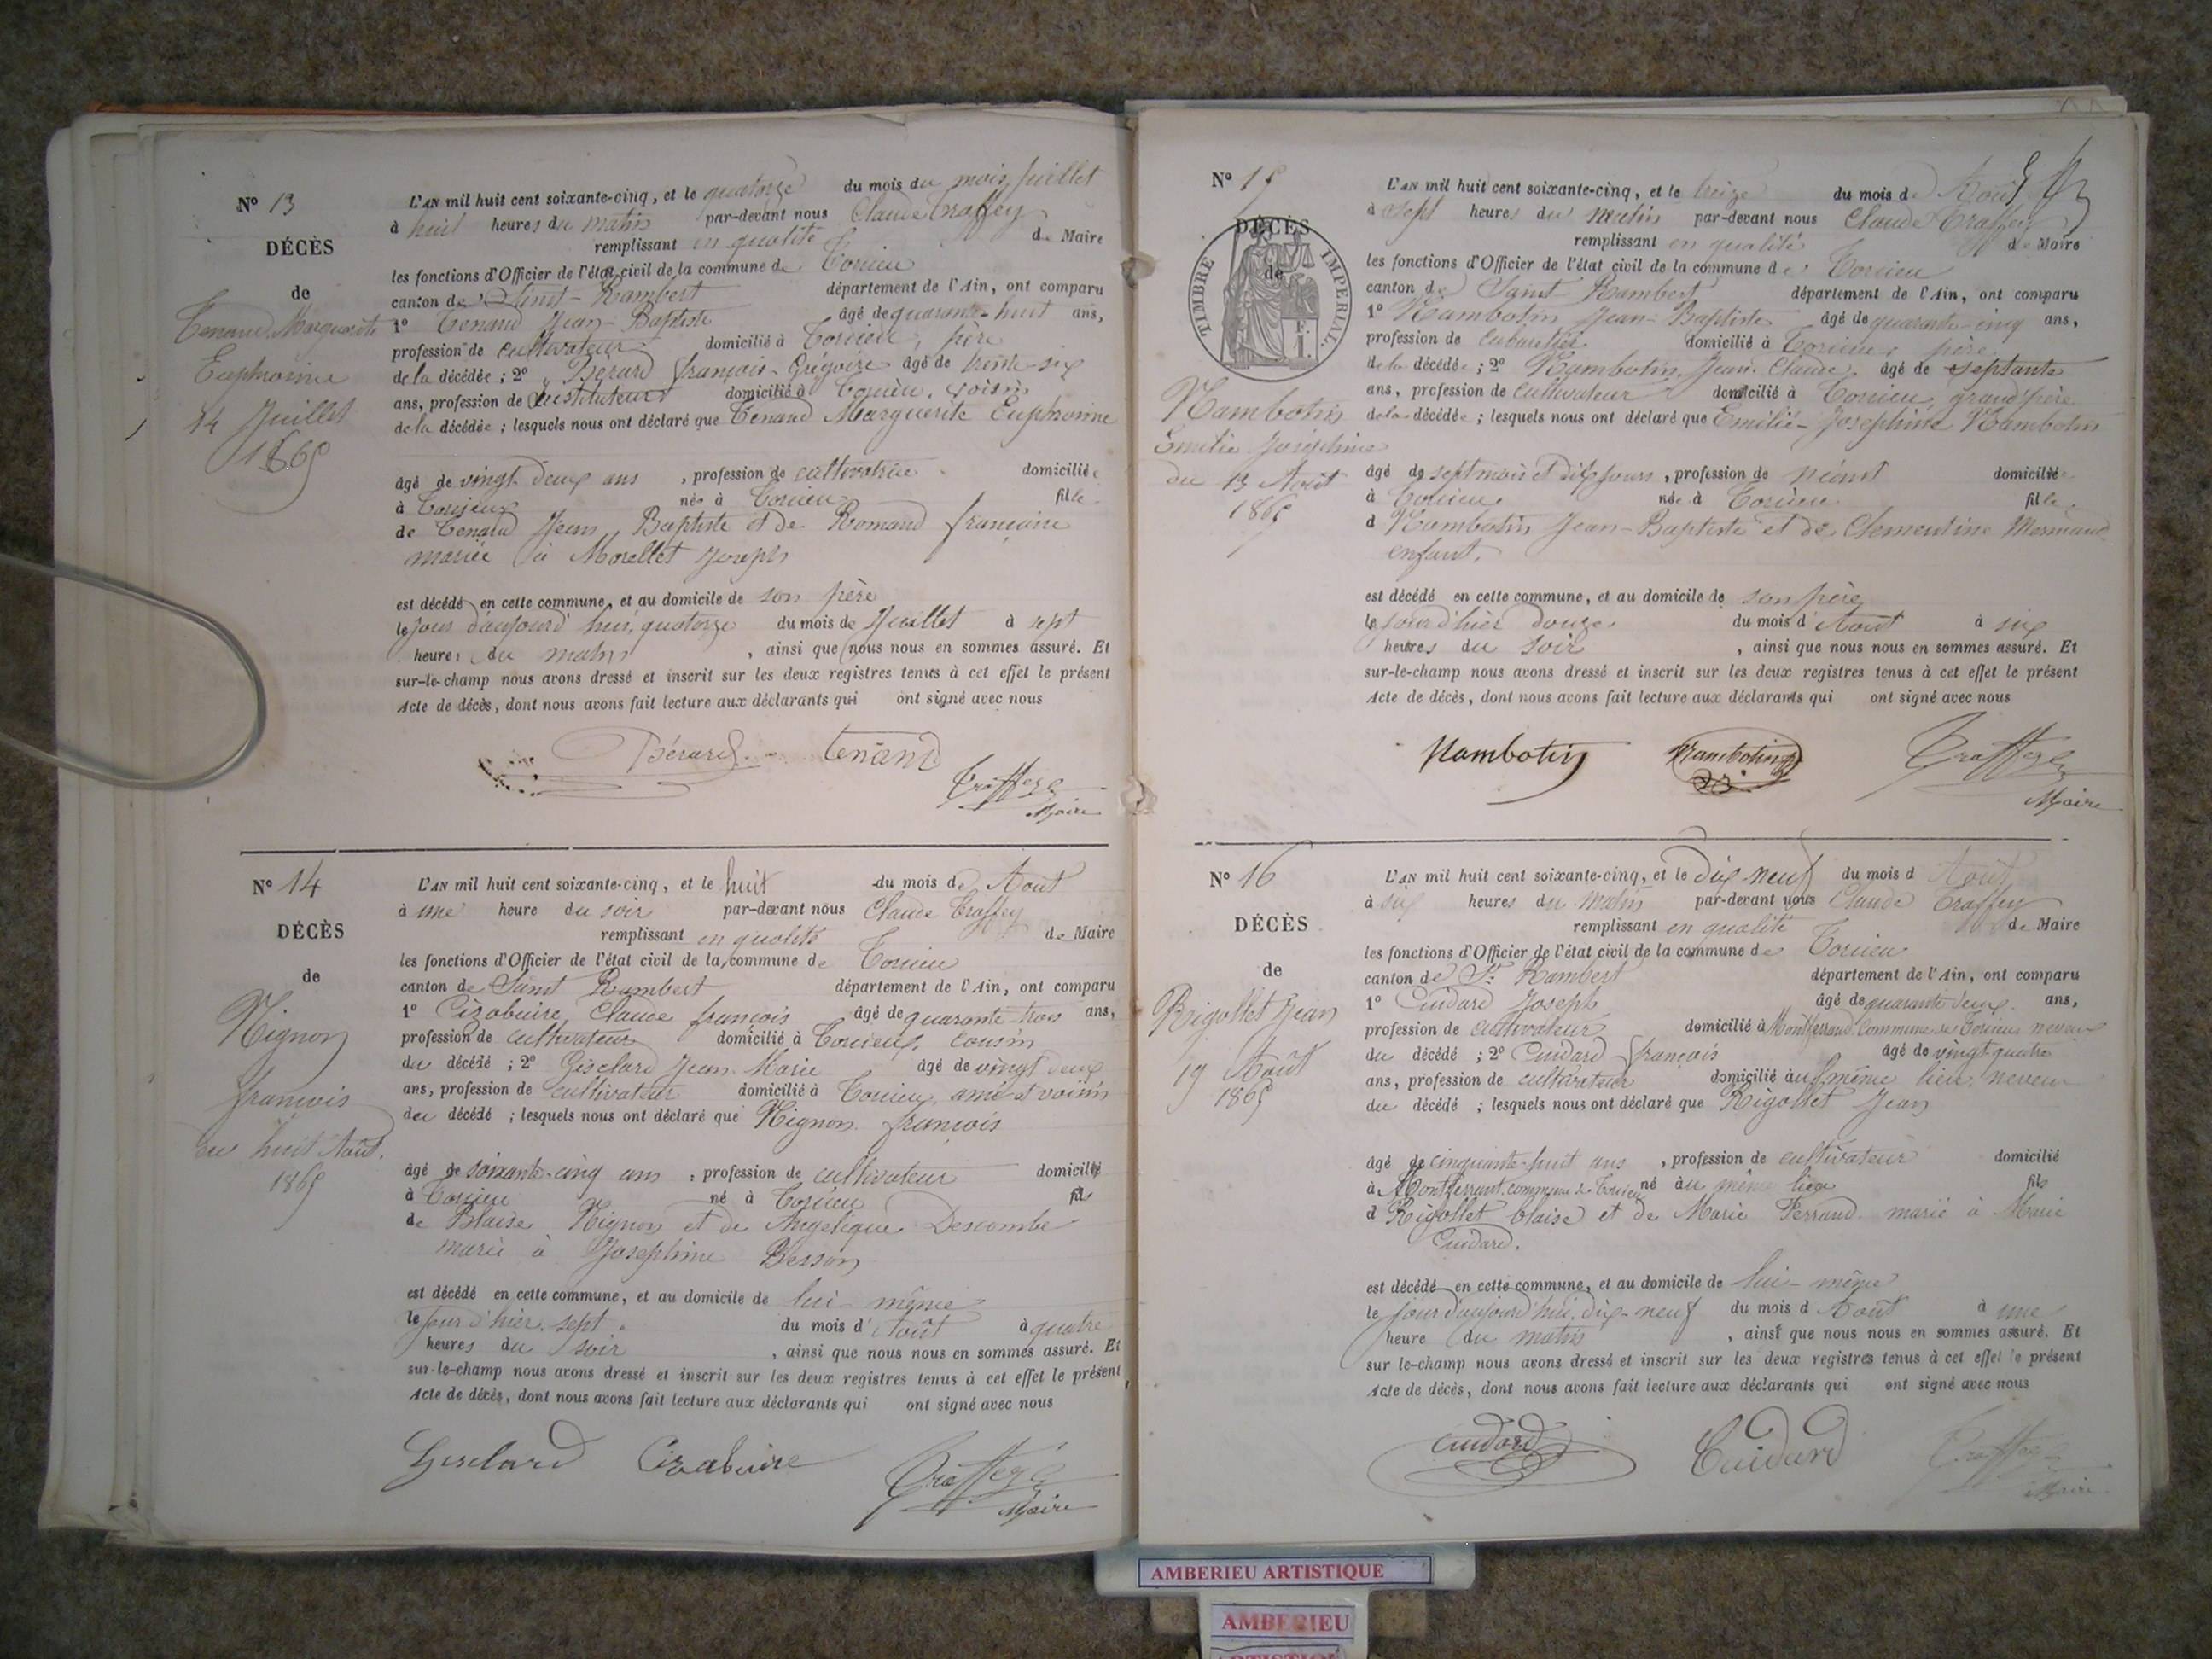 N° 13
DÉCÈS
de
Tenand Marguerite
Euphrosine
14 Juillet
1865
L'AN mil huit cent soixante-cinq, et le quatorze du mois du mois Juillet
à huit heures du matin par-devant nous Claude Traffey
remplissant en qualité de Maire
les fonctions d'Officier de l'état civil de la commune de Torcieu
canton de Saint-Rambert département de l'Ain, ont comparu
1° Tenand Jean-Baptiste âgé de quarante-huit ans,
profession de cultivateur domicilié à Torcieu, père
de la décédée ; 2° Bérard françois-Grégoire âgé de trente-six
ans, profession de Instituteur domicilié à Torcieu, voisin
de la décédée ; lesquels nous ont déclaré que Tenand Marguerite Euphrosine
âgé de vingt-deux ans , profession de cultivatrice domiciliée
à Torcieu née à Torcieu fille
de Tenand Jean Baptiste et de Romand françoise
mariée à Morellet Joseph
est décédé en cette commune, et au domicile de son père
le jour d'aujourd'hui, quatorze du mois de Juillet à sept
heures du matin , ainsi que nous nous en sommes assuré. Et
sur-le-champ nous avons dressé et inscrit sur les deux registres tenus à cet effet le présent
Acte de décès, dont nous avons fait lecture aux déclarants qui ont signé avec nous
Bérard Tenand
Traffey
Maire
N° 14
DÉCÈS
de
Mignon
françois
du huit Août
1865
L'AN mil huit cent soixante-cinq, et le huit du mois de Août
à une heure du soir par-devant nous Claude Traffey
remplissant en qualité de Maire
les fonctions d'Officier de l'état civil de la commune de Torcieu
canton de Saint Rambert département de l'Ain, ont comparu
1° Cizabuire Claude françois âgé de quarante-trois ans,
profession de cultivateur domicilié à Torcieu, cousin
du décédé ; 2° Gisclard Jean-Marie âgé de vingt deux
ans, profession de cultivateur domicilié à Torcieu, ami et voisin
du décédé ; lesquels nous ont déclaré que Mignon françois
âgé de soixante-cinq ans , profession de cultivateur domicilié
à Torcieu né à Torcieu fils
de Blaise Mignon et de Angélique Descombe
marié à Joséphine Besson
est décédé en cette commune, et au domicile de lui même
le jour d'hier sept du mois d'Août à quatre
heures du soir , ainsi que nous nous en sommes assuré. Et
sur-le-champ nous avons dressé et inscrit sur les deux registres tenus à cet effet le présent
Acte de décès, dont nous avons fait lecture aux déclarants qui ont signé avec nous
Gisclard Cizabuire Traffey
Maire
N° 15
DÉCÈS
de
TIMBRE IMPERIAL
Nambotin
Emilie Joséphine
du 13 Août
1865
L'AN mil huit cent soixante-cinq, et le treize du mois d Août
à sept heures du matin par-devant nous Claude Traffey
remplissant en qualité de Maire
les fonctions d'Officier de l'état civil de la commune de Torcieu
canton de Saint-Rambert département de l'Ain, ont comparu
1° Nambotin Jean-Baptiste âgé de quarante-cinq ans,
profession de cabaretier domicilié à Torcieu, père
de la décédée ; 2° Nambotin Jean-Claude âgé de septante
ans, profession de cultivateur domicilié à Torcieu, grand-père
de la décédée ; lesquels nous ont déclaré que Emilie-Joséphine Nambotin
âgé de sept mois et dix jours , profession de néant domiciliée
à Torcieu née à Torcieu fille
d Nambotin Jean-Baptiste et de Clementine Mermand
enfant.
est décédé en cette commune, et au domicile de son père
le jour d'hier douze du mois d'Août à six
heures du soir , ainsi que nous nous en sommes assuré. Et
sur-le-champ nous avons dressé et inscrit sur les deux registres tenus à cet effet le présent
Acte de décès, dont nous avons fait lecture aux déclarants qui ont signé avec nous
Nambotin Nambotin Traffey
Maire
N° 16
DÉCÈS
de
Rigollet Jean
19 Août
1865
L'AN mil huit cent soixante-cinq, et le dix-neuf du mois d Août
à six heures du matin par-devant nous Claude Traffey
remplissant en qualité de Maire
les fonctions d'Officier de l'état civil de la commune de Torcieu
canton de St Rambert département de l'Ain, ont comparu
1° Cuidard Joseph âgé de quarante deux ans,
profession de cultivateur domicilié à Montferrand commune de Torcieu neveu
du décédé ; 2° Cuidard françois âgé de vingt quatre
ans, profession de cultivateur domicilié au même lieu, neveu
du décédé ; lesquels nous ont déclaré que Rigollet Jean
âgé de cinquante-huit ans , profession de cultivateur domicilié
à Montferrant commune de Torcieu né au même lieu fils
d Rigollet blaise et de Marie Ferrand marié à Marie
Cuidard.
est décédé en cette commune, et au domicile de lui-même
le jour d'aujourd'hui, dix-neuf du mois d Août à une
heure du matin , ainsi que nous nous en sommes assuré. Et
sur le-champ nous avons dressé et inscrit sur les deux registres tenus à cet effet le présent
Acte de décès, dont nous avons fait lecture aux déclarants qui ont signé avec nous
Cuidard Cuidard Traffey
Maire
AMBERIEU ARTISTIQUE
AMBERIEU
ARTISTIQUE